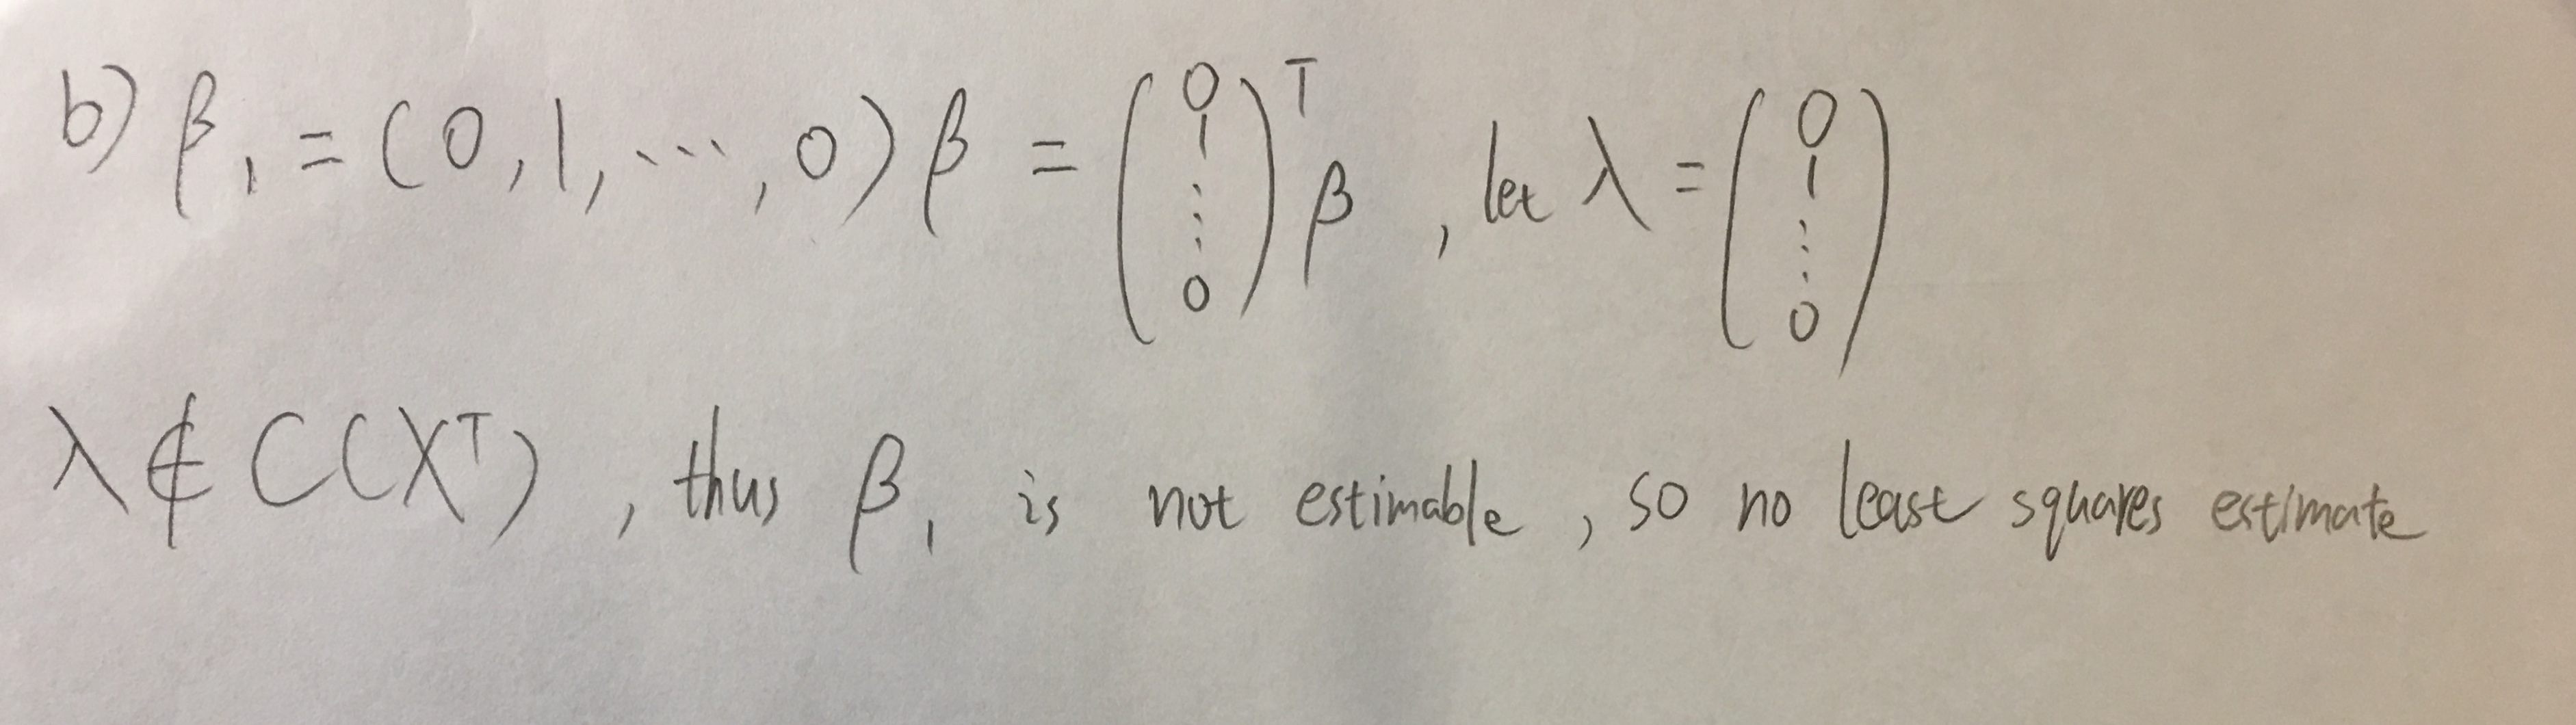 b) β₁ = (0, 1, ⋯, 0) β = (0 1 ⋮ 0)ᵀ β , let λ = (0 1 ⋮ 0)
λ ∉ C(Xᵀ) , thus β₁ is not estimable , so no least squares estimate